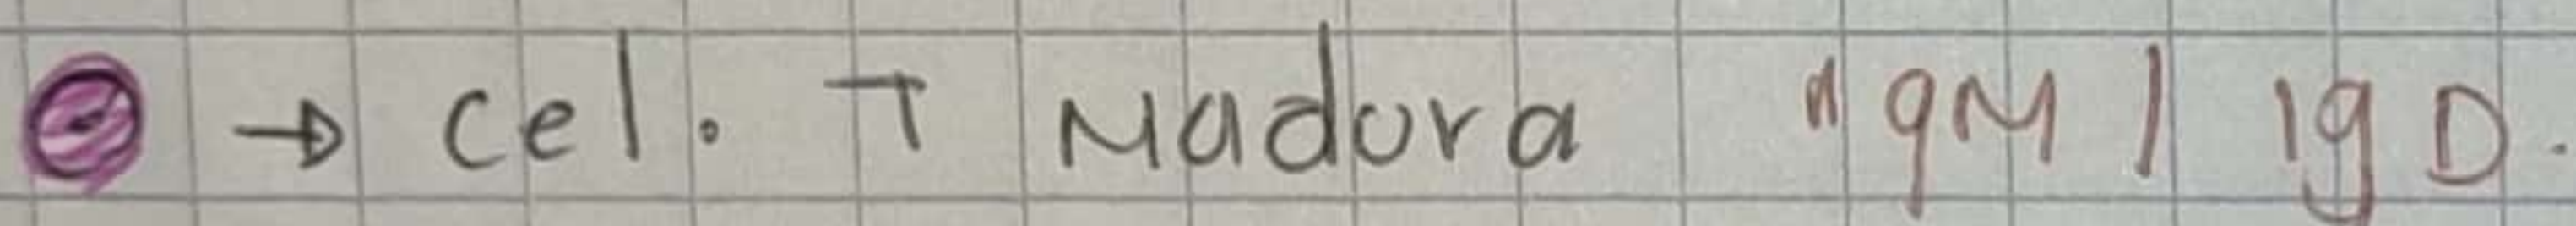 → cel. T Madura IgM / Ig D.